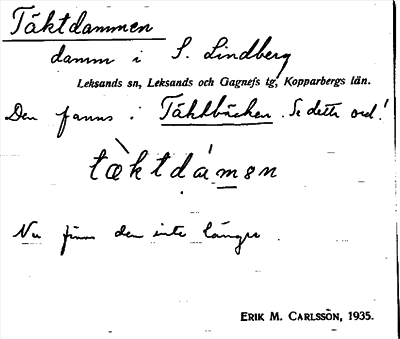 Täktdammen
damm i S. Lindberg
Leksands sn, Leksands och Gagnefs tg, Kopparbergs län.
Den fanns i Täktbäcken. Se detta ord!
tæ̀ktdámen
Nu finns den inte längre.
ERIK M. CARLSSON, 1935.